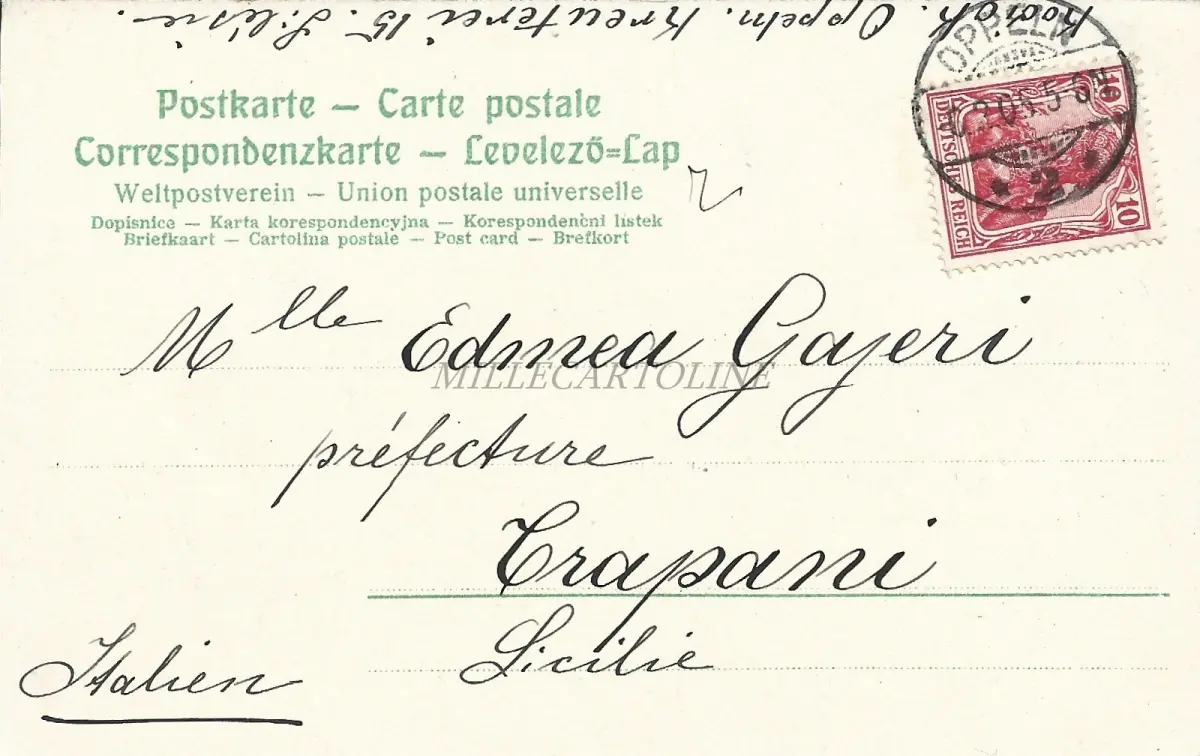 Kodak. Oppeln. Kreuterei 15. Silésie.
Postkarte – Carte postale
Correspondenzkarte – Levelező=Lap
Weltpostverein – Union postale universelle
Dopisnice – Karta korespondencyjna – Korespondenčni listek
Briefkaart – Cartolina postale – Post card – Brefkort
OPPELN
5-6N
* 2 *
DEUTSCHES REICH
10
10
Mlle Edmea Gajeri
MILLECARTOLINE
préfecture
Trapani
Sicilie
Italien